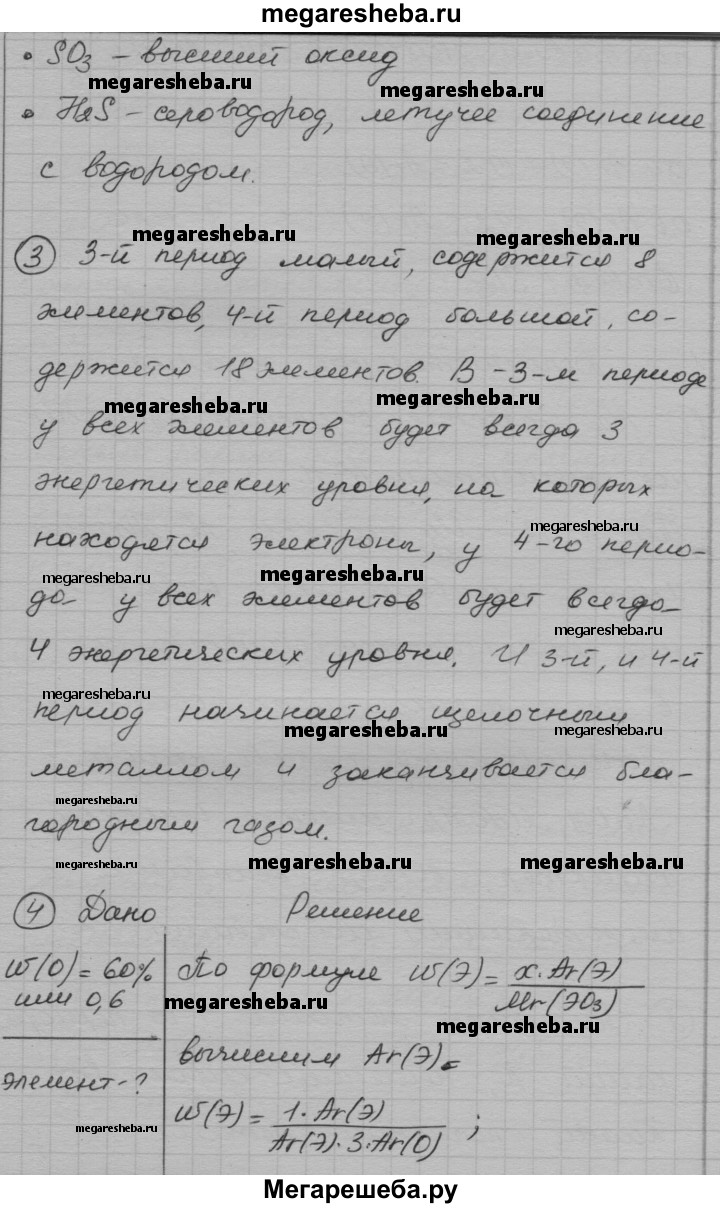 megaresheba.ru
• SO3 – высший оксид
megaresheba.ru megaresheba.ru
• H2S – сероводород, летучее соединение
с водородом.
megaresheba.ru megaresheba.ru
3 3-й период малый, содержится 8
элементов, 4-й период большой, со-
держится 18 элементов. В -3-м периоде
megaresheba.ru megaresheba.ru
у всех элементов будет всегда 3
энергетических уровня, на которых
megaresheba.ru
находятся электроны, у 4-го перио-
megaresheba.ru megaresheba.ru
да у всех элементов будет всегда
megaresheba.ru
4 энергетических уровня. И 3-й, и 4-й
megaresheba.ru
период начинается щелочным
megaresheba.ru megaresheba.ru
металлом и заканчивается бла-
megaresheba.ru
городным газом.
megaresheba.ru megaresheba.ru megaresheba.ru
4 Дано Решение
W(O) = 60% По формуле W(Э) = x·Ar(Э) / Mr(ЭO3)
или 0,6 megaresheba.ru
megaresheba.ru
вычислим Ar(Э).
элемент-?
W(Э) = 1·Ar(Э) / Ar(Э)·3·Ar(O) ;
megaresheba.ru
Мегарешеба.ру